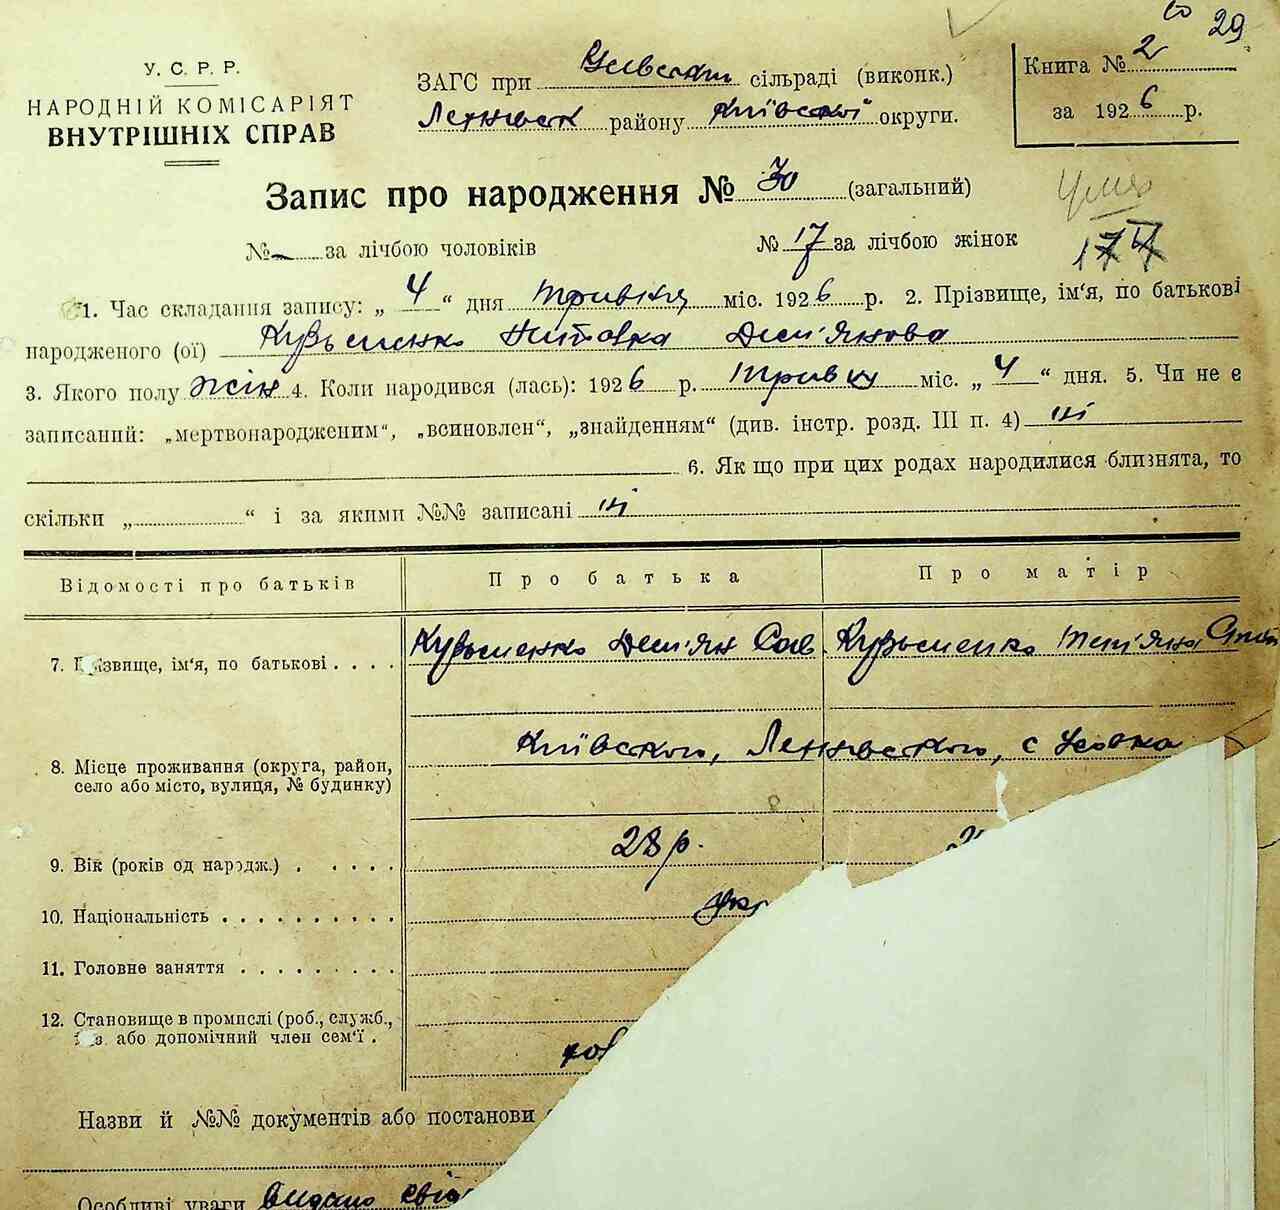 29
У. С. Р. Р.
НАРОДНІЙ КОМІСАРІЯТ
ВНУТРІШНІХ СПРАВ
ЗАГС при сільраді (виконк.)
району Київської округи.
Книга № 2
за 1926 р.
Запис про народження № 30 (загальний)
№ — за лічбою чоловіків
№ 17 за лічбою жінок
1. Час складання запису: „ 4 “ дня травня міс. 1926 р. 2. Прізвище, ім'я, по батькові
народженого (ої) Кузьменко Дем'янова
3. Якого полу жін 4. Коли народився (лась): 1926 р. травня міс. „ 4 “ дня. 5. Чи не є
записаний: „мертвонародженим“, „всиновлен“, „знайденням“ (див. інстр. розд. III п. 4) ні
6. Як що при цих родах народилися близнята, то
скільки „ “ і за якими №№ записані ні
Відомості про батьків
Про батька
Про матір
7. Прізвище, ім'я, по батькові . . . .
Кузьменко Дем'ян Сав
Кузьменко
8. Місце проживання (округа, район,
село або місто, вулиця, № будинку)
Київского, с Усовка
9. Вік (років од народж.) . . . . .
28 р.
10. Національність . . . . . . . . . .
укр
11. Головне заняття . . . . . . . . .
12. Становище в промислі (роб., служб.,
або допомічний член сем'ї .
Назви й №№ документів або постанови
Особливі уваги видано сві